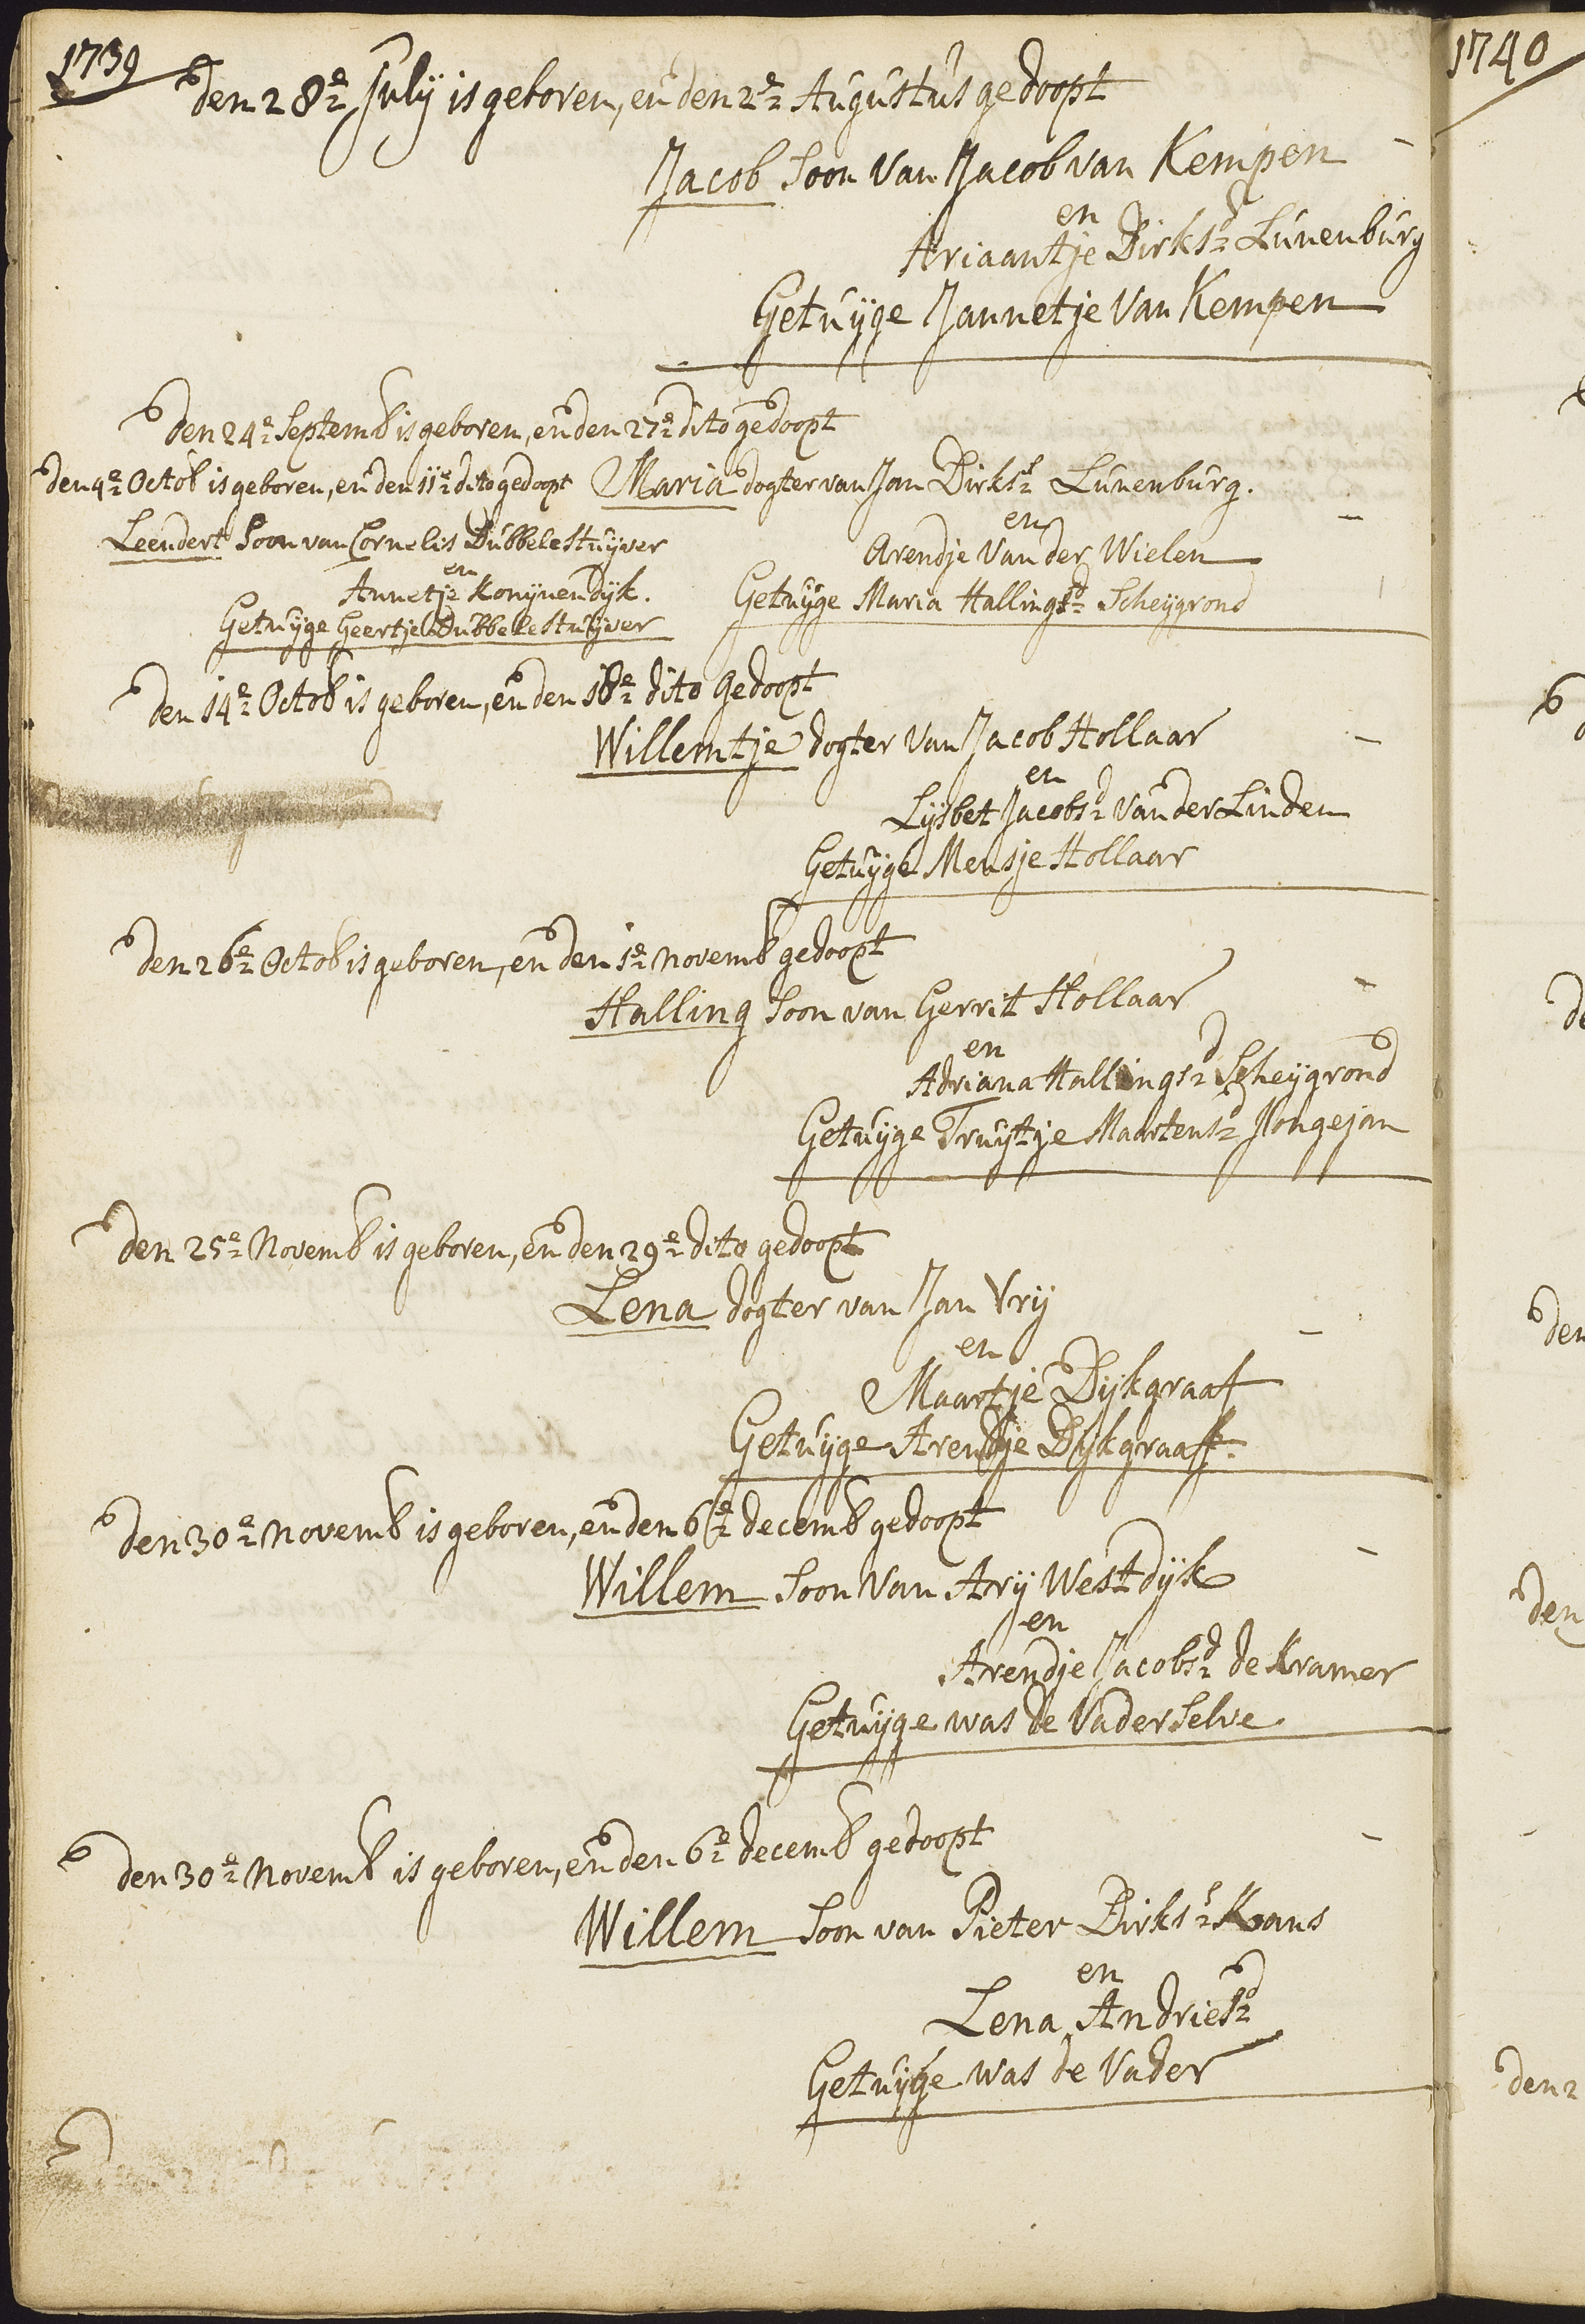 1739
den 28e July is geboren, en den 2e Augustus gedoopt
Jacob Soon van Jacob van Kempen
en
Ariaantje Dirksd Lunenburg
Getuijge Jannetje van Kempen
den 24e Septemb is geboren, en den 27e dito gedoopt
Maria dogter van Jan Dirksz Lunenburg.
en
Arendje van der Wielen
Getuijge Maria Hallingsd Scheijgrond
den 4e Octob is geboren, en den 11e dito gedoopt
Leendert Soon van Cornelis Dubbelestuijver
en
Annetje Konijnendijk.
Getuijge Geertje Dubbelestuijver
den 14e Octob is geboren, en den 18e dito gedoopt
Willemtje dogter van Jacob Hollaar
en
Lijsbet Jacobsd van der Linden
Getuijge Mensje Hollaar
den 26e Octob is geboren, en den 1e novemb gedoopt
Halling Soon van Gerrit Hollaar
en
Adriana Hallingsd Scheijgrond
Getuijge Truijtje Maartensd Jongejan
den 25e Novemb is geboren, en den 29e dito gedoopt
Lena dogter van Jan Vrij
en
Maartje Dijkgraaf
Getuijge Arendje Dijkgraaff.
den 30e novemb is geboren, en den 6e decemb gedoopt
Willem Soon van Arij Westdijk
en
Arendje Jacobsd de Kramer
Getuijge was de Vader selve
den 30e novemb is geboren, en den 6e decemb gedoopt
Willem Soon van Pieter Dirksz Kans
en
Lena Andriesd
Getuijge was de Vader
1740
de
den
den
den 2